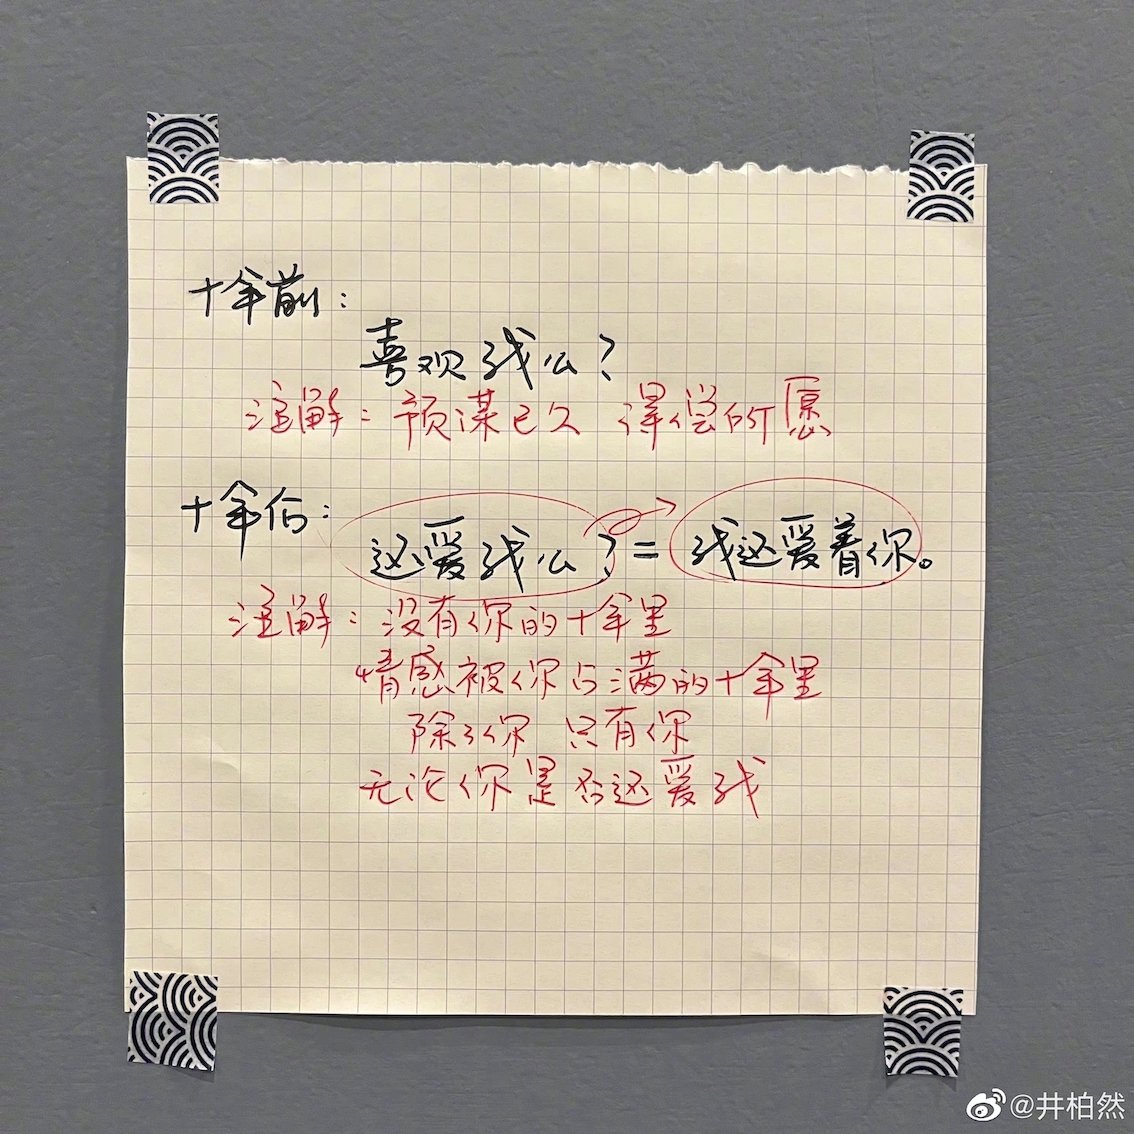 十年前:
喜欢我么?
注解:预谋已久 得偿所愿
十年后:
还爱我么?=我还爱着你。
注解:没有你的十年里
情感被你占满的十年里
除了你 只有你
无论你是否还爱我
@井柏然